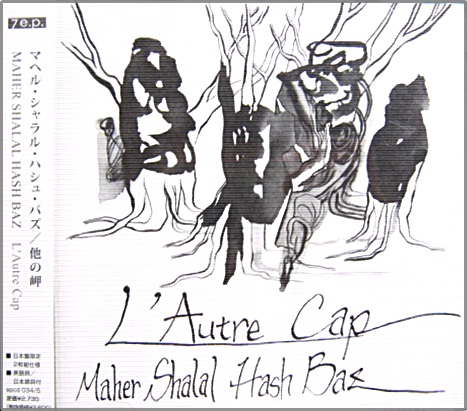 7e.p.
マヘル・シャラル・ハシュ・バズ／他の岬
MAHER SHALAL HASH BAZ L'Autre Cap
■日本盤限定
2枚組仕様
■英語詞／
日本語詞付
epcd 034/5
定価￥2,730
L'Autre Cap
Maher Shalal Hash Baz